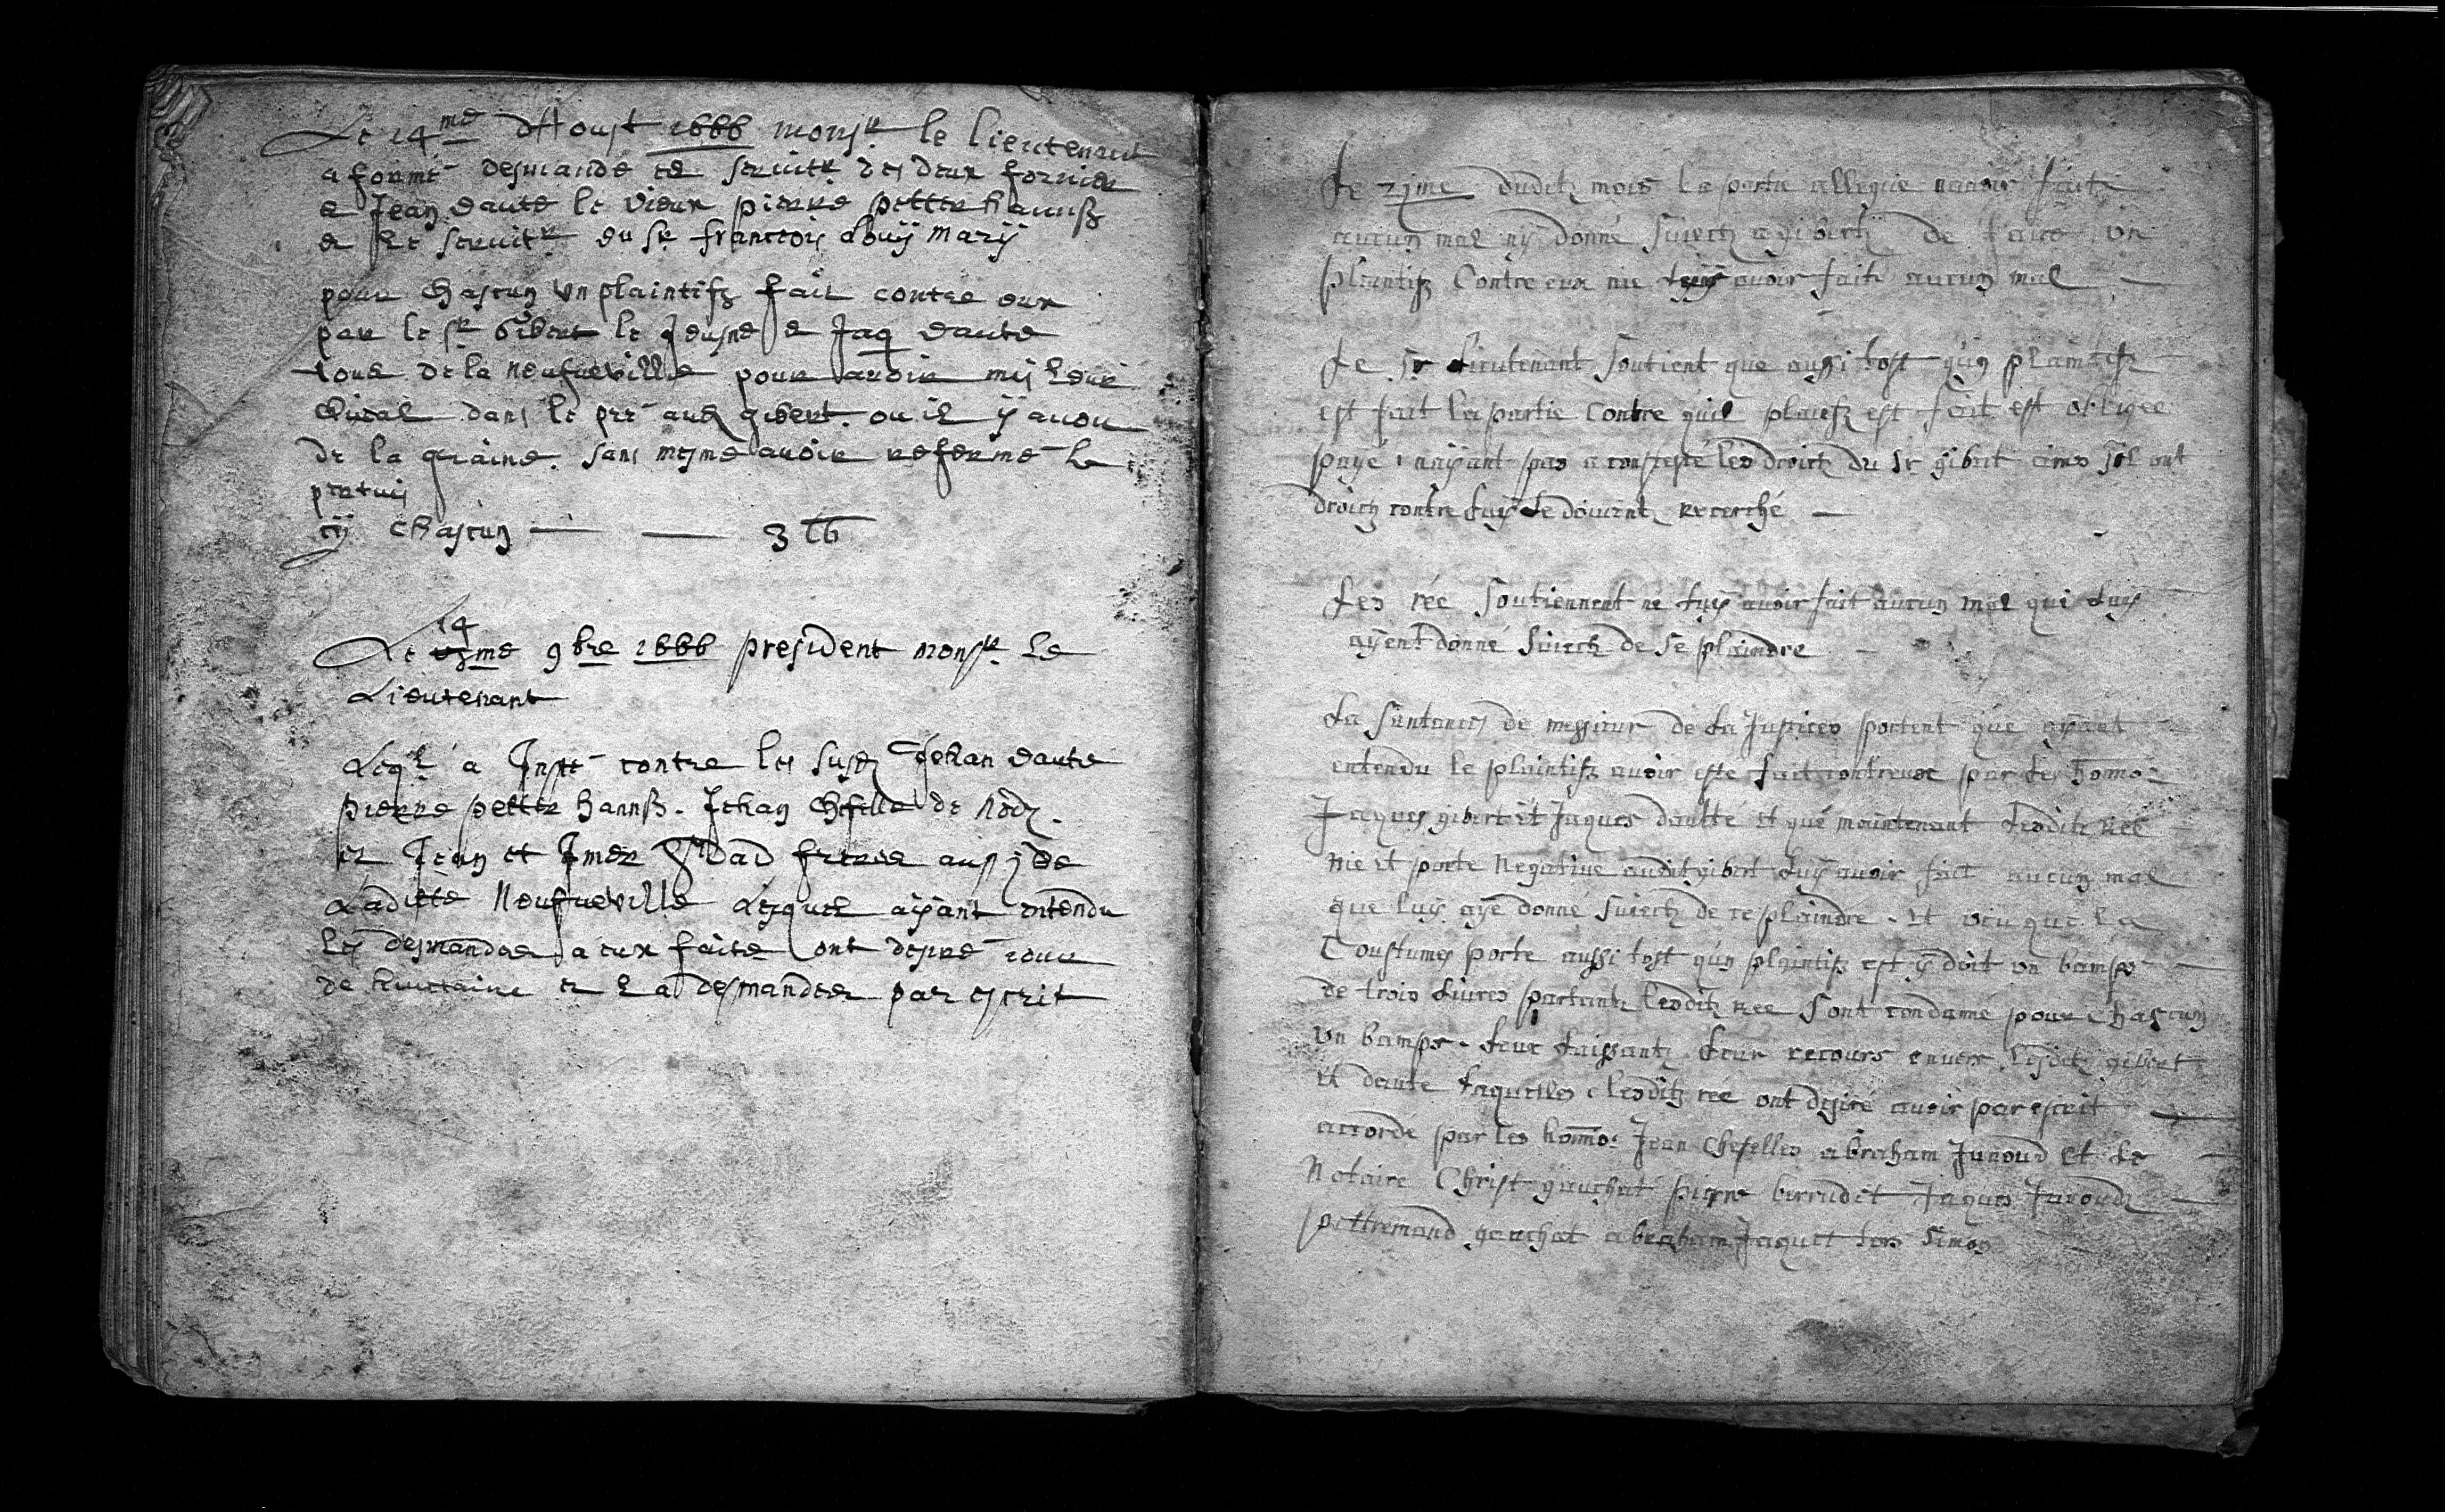 Le 14me dAoust 1666 monsr. le lieutenant
a formé desmande es seruitr des deux fornier
a Jean daute le vieux pierre petter hannß
a le seruitr du sr francois Louÿ marÿ
pour chascun vn plaintifz fait contre eux
par le sr Gibert le Jeusne e Jaq daute
tous de la neufueuille pour auoir mis leur
cheual dans le pré audz gibert. ou il ÿ auou
de la graine. sans mesme auoir refermé le
pertuis
cÿ chascun — — 3 lb
14
Le me 9bre 1666 president monsr. le
Lieutenant
Leql a Insté contre les susdz Jehan daute
pierre petter hannß. Jehan Chiffelle de Nodz.
et Jean et Imer frere aussÿ de
Laditte Neufueuille Lesquel aÿant entendu
les desmandes a eux faite ont desiré iour
de huictaine et la desmandes par escrit
Le 21me dudit mois la partie allegue nauoir fait
aucun mal nÿ donné suiect a giberts de faire vn
plaintifz Contre eux nie luÿ auoir fait aucun mal —
Le sr Lieutenant soutient que aussi tost qun plaintifz
est fait la partie contre quil plaintifz est fait est obligee
payé nayant pas a contesté les droicts du sr gibert ains sil ont
droicts contre luÿ Le doiuent recerché —
Les rée soutiennent ne luÿ auoir fait aucun mal qui luÿ
aÿent donné suiect de se plaindre —
La santances de messieur de La Justices portent que ayant
entendu le plaintifz auoir esté fait contreux par les homo:
Jaques gibert et Jaques daulte et que maintenant lesdits rée
nie et porte Negatiue audit gibert luÿ auoir fait aucun mal
que luÿ aÿe donné suiect de ce plaindre. et veu que la
Coustumes porte aussi tost qun plaintifz est ÿ doit vn bamps
de trois Liures partant lesdits rée sont condamné pour chascun
vn bamps. Leur Laissants Leur recours enuers lesdits gibert
et daute Laquelles lesdits rée ont desiré auoir par escrit
accordé par les hommo: Jean Chefelles abraham Junoud et Le
Notaire Christ gauchat pierre berrudet Jaques Junoud
pettremand gauchat abraham Jaquet